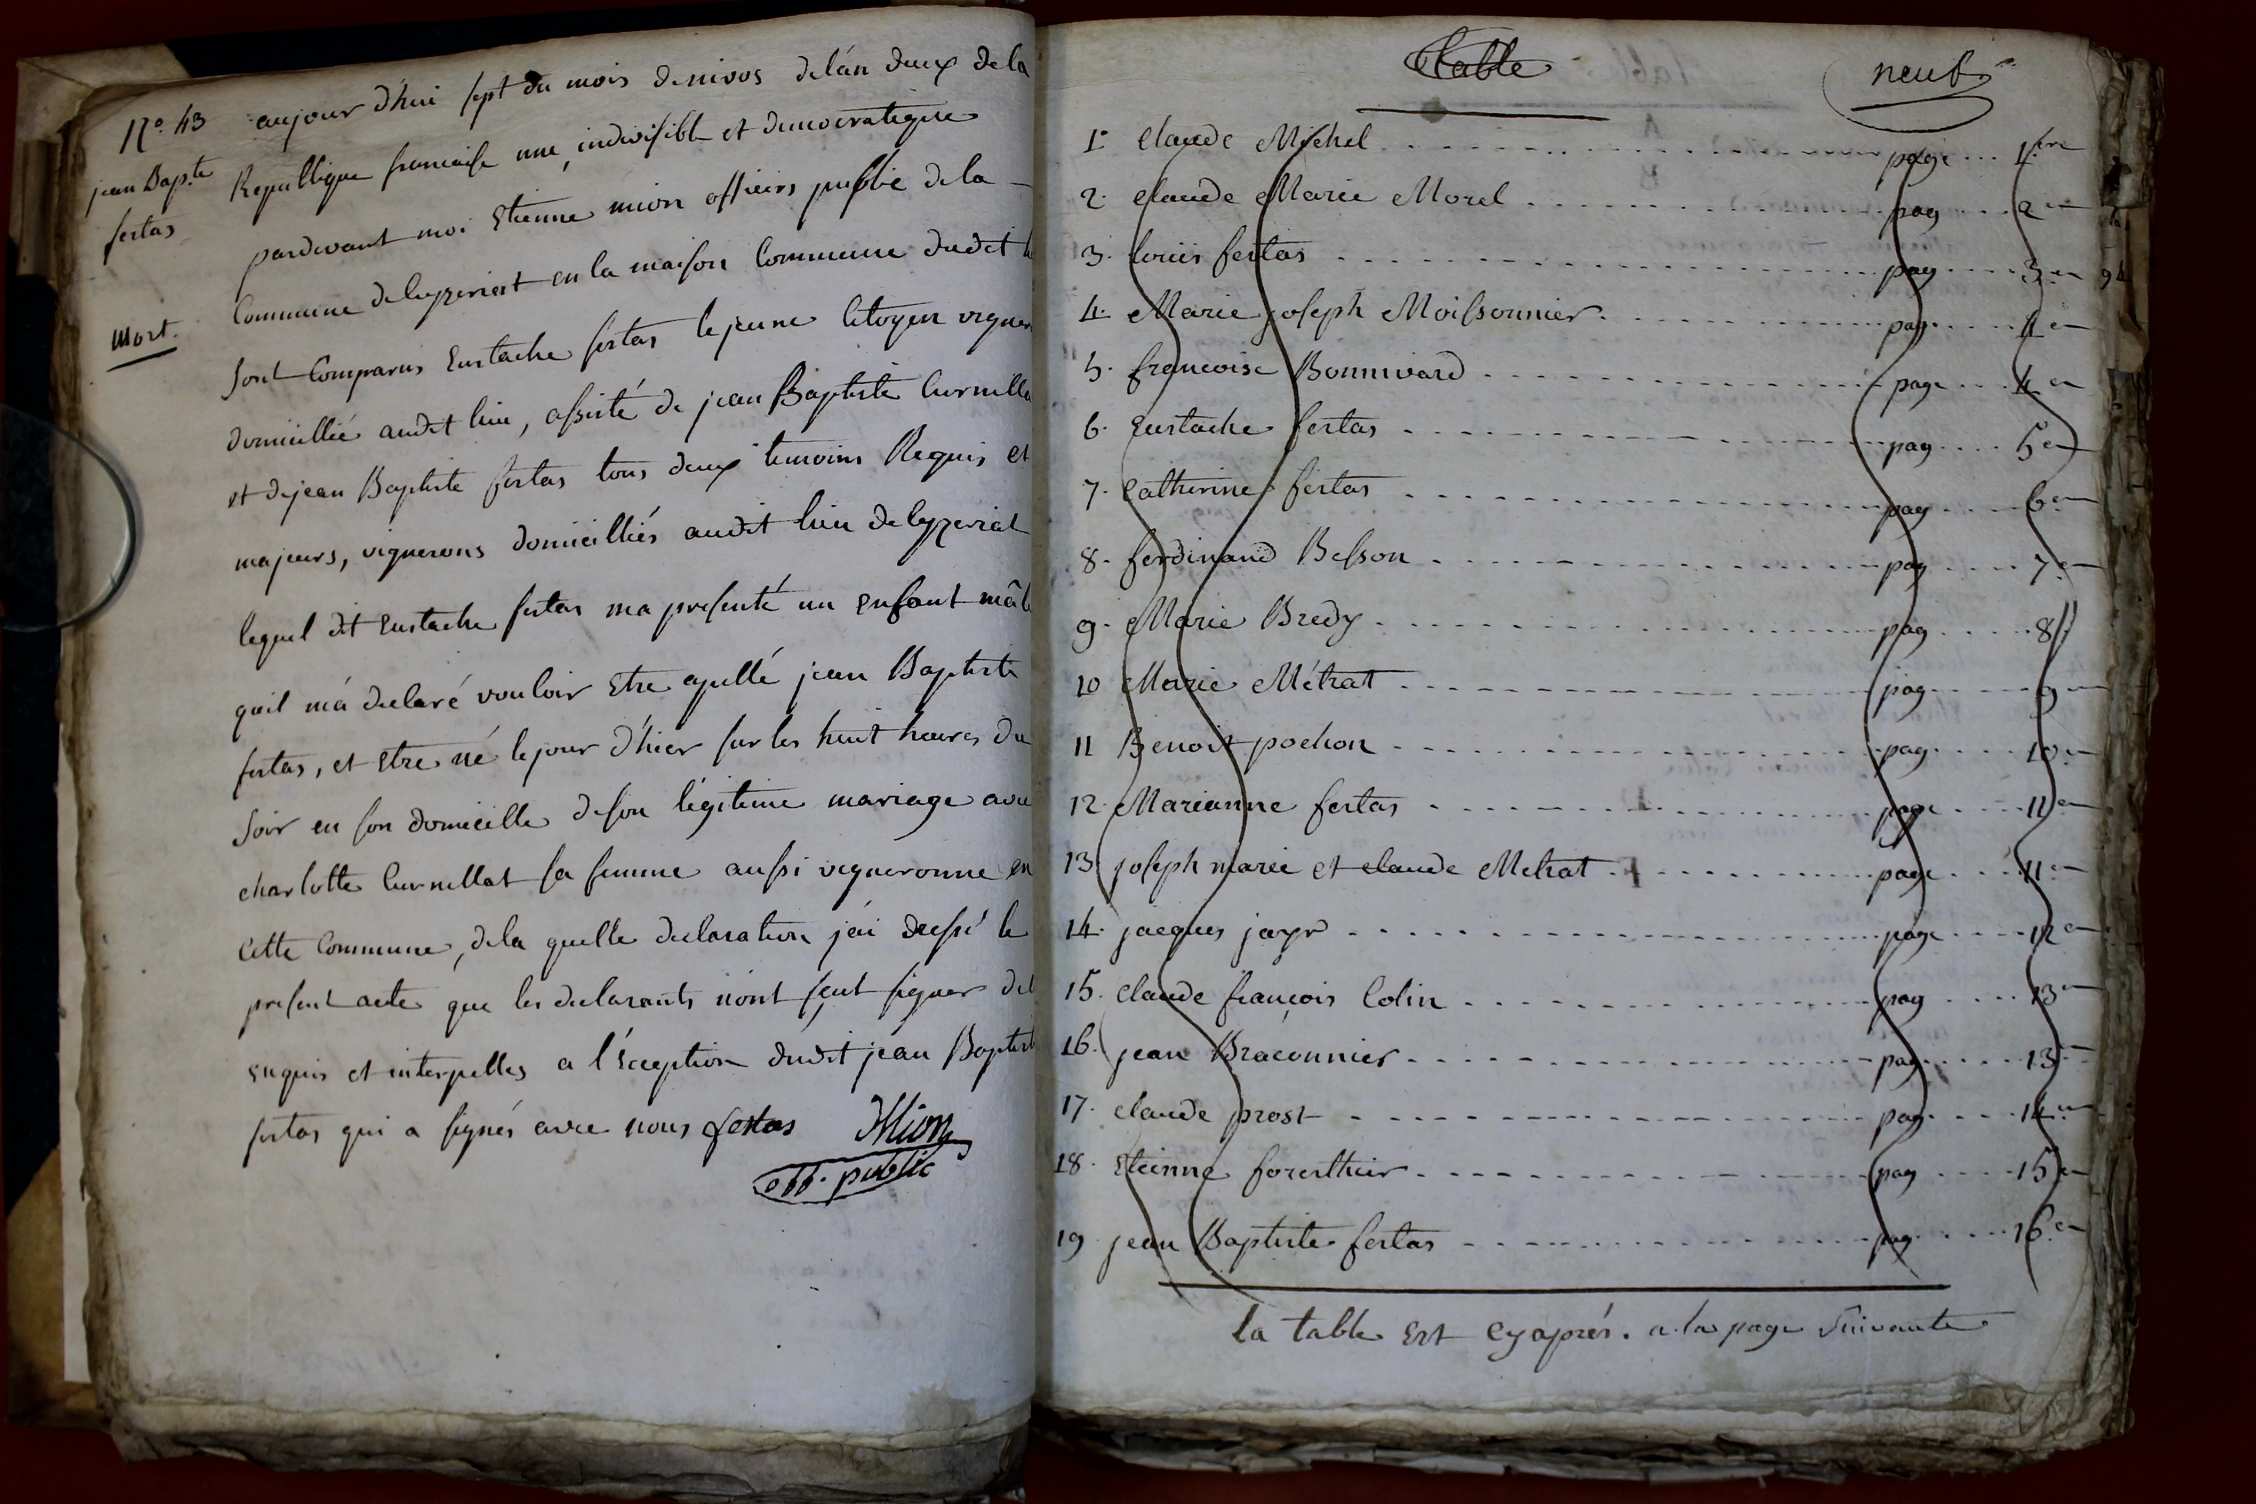 N.° 43
jean Bap.te
fertas
mort.
aujour d'hui sept du mois de nivos de l'án deux de la
Republique francaise une, indivisible et democratique
pardevant moi Etienne mion officiers public de la
Commune de leyzeriat en la maison Commune dudit
sont Comparus Eustache fertas le jeune Citoyen vigner
domicillié audit lieu, assisté de jean Baptiste Curnilla
et de jean Baptiste fertas tous deux temoins Requis et
majeurs, vignerons domicilliés audit lieu de leyzeriat
lequel dit Eustache fertas ma presenté un enfant mâl
quil má declaré vouloir Etre apellé jean Baptiste
fertas, et Etre né le jour d'hier sur les huit heures du
soir en son domicille de son légitime mariage ave
charlotte Curnillat sa femme aussi vigneronne en
Cette Commune, de la quelle declaration j'ái dressé le
present acte que les declarants n'ont sçut signer de
Enquis et interpelles a l'Exception dudit jean Baptist
fertas qui a signés avec nous fertas Mion
off. public
table
neuf
1° Claude Michel page 1.ere
2. Claude Marie Morel pag 2 e
3. louis fertas pag 3 e
4. Marie joseph Moissonnier pag 4 e
5. francoise Bonnivard page 4 e
6. Eustache fertas pag 5 e
7. Catherine fertas pag 6 e
8. ferdinand Besson pag 7 e
9. Marie Bredy pag 8
10 Marie Métrat pag 9
11 Benoit pochon pag 10 e
12. Marianne fertas page 11 e
13 joseph marie et claude Metrat page 11 e
14. jacques jayr page 12 e
15. Claude françois Colin pag 13 e
16. jean Braconnier pag 13 e
17. claude prost pag 14 e
18. Etienne foresthier pag 15 e
19 jean Baptiste fertas pag 16 e
la table Est Cy aprés. a la page suivante